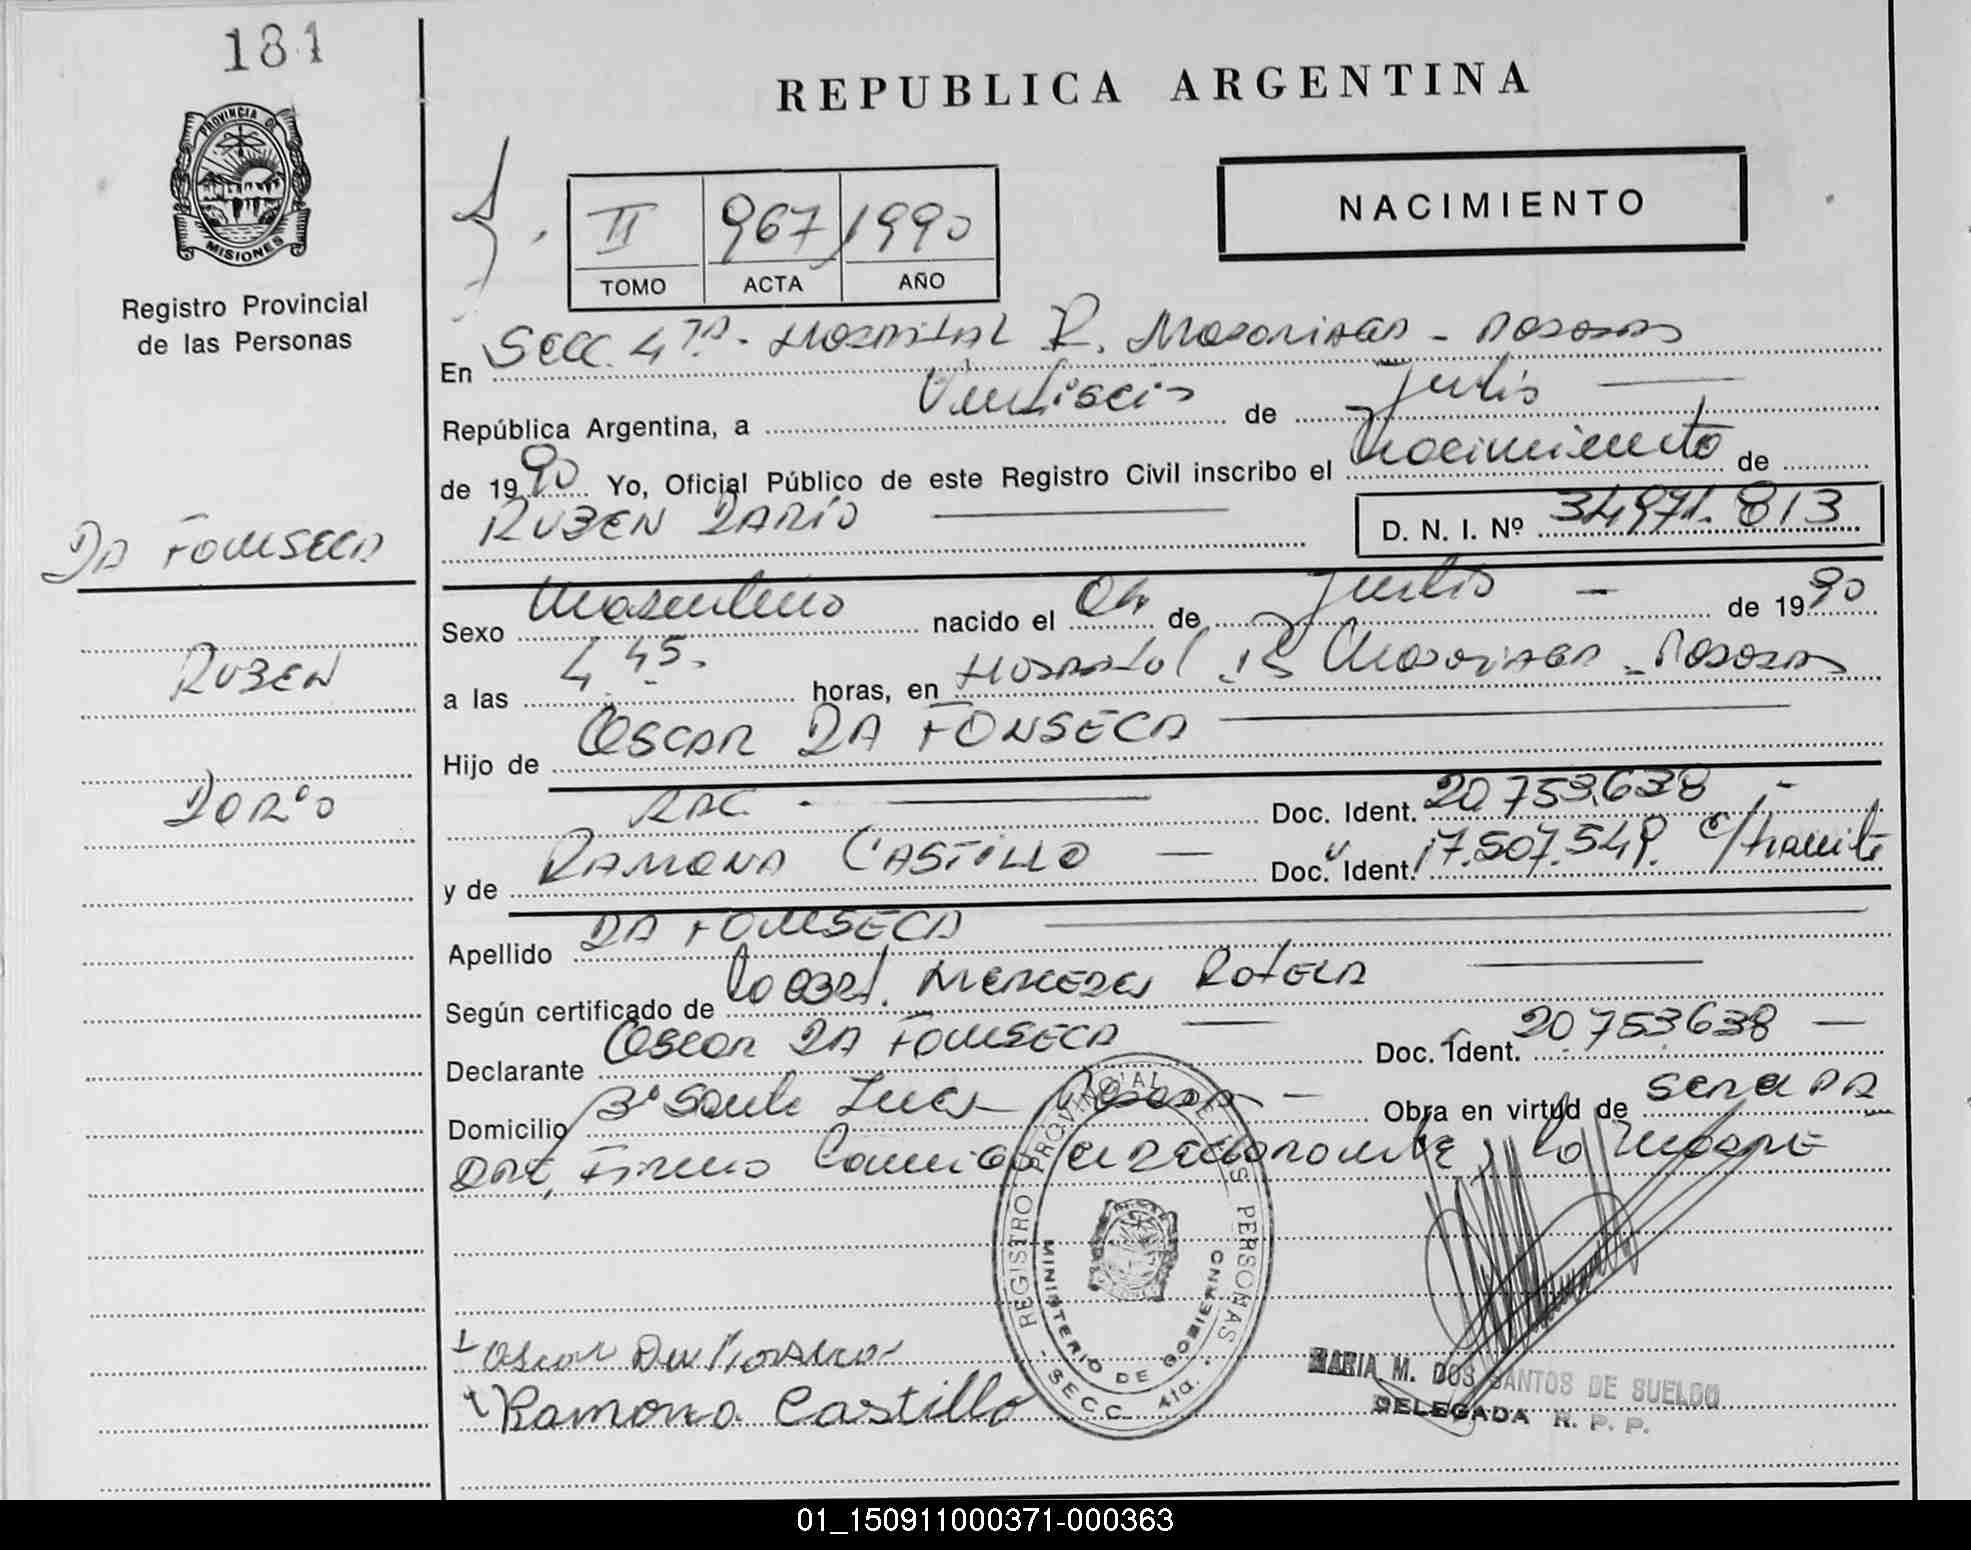 181
REPUBLICA ARGENTINA
PROVINCIA DE
MISIONES
Registro Provincial
de las Personas
II 967 1990
TOMO ACTA AÑO
NACIMIENTO
En Secc. 4ta. Hospital R. Madariaga - Posadas
República Argentina, a Veintiseis de Julio
de 1990 Yo, Oficial Público de este Registro Civil inscribo el Nacimiento de
RUBEN DARÍO
D. N. I. Nº 34971.813
DA FONSECA
RUBEN
DARÍO
Sexo Masculino nacido el 04 de Julio de 1990
a las 4 45. horas, en Hospital R Madariaga - Posadas
Hijo de OSCAR DA FONSECA
Doc. Ident. 20.753.638
y de RAMONA CASTILLO Doc. Ident. 17.507.549. c/tramite
Apellido DA FONSECA
Según certificado de la obst. Mercedes Rotela
Declarante Oscar DA FONSECA Doc. Ident. 20.753.638
Domicilio Bº Santa Lucia Posadas Obra en virtud de ser el PA
DRE, Firma la madre
REGISTRO PROVINCIAL DE LAS PERSONAS
MINISTERIO DE GOBIERNO
SECC. 4ta.
Oscar
Ramona Castillo
MARIA M. DOS SANTOS DE SUELDO
DELEGADA R. P. P.
01_150911000371-000363